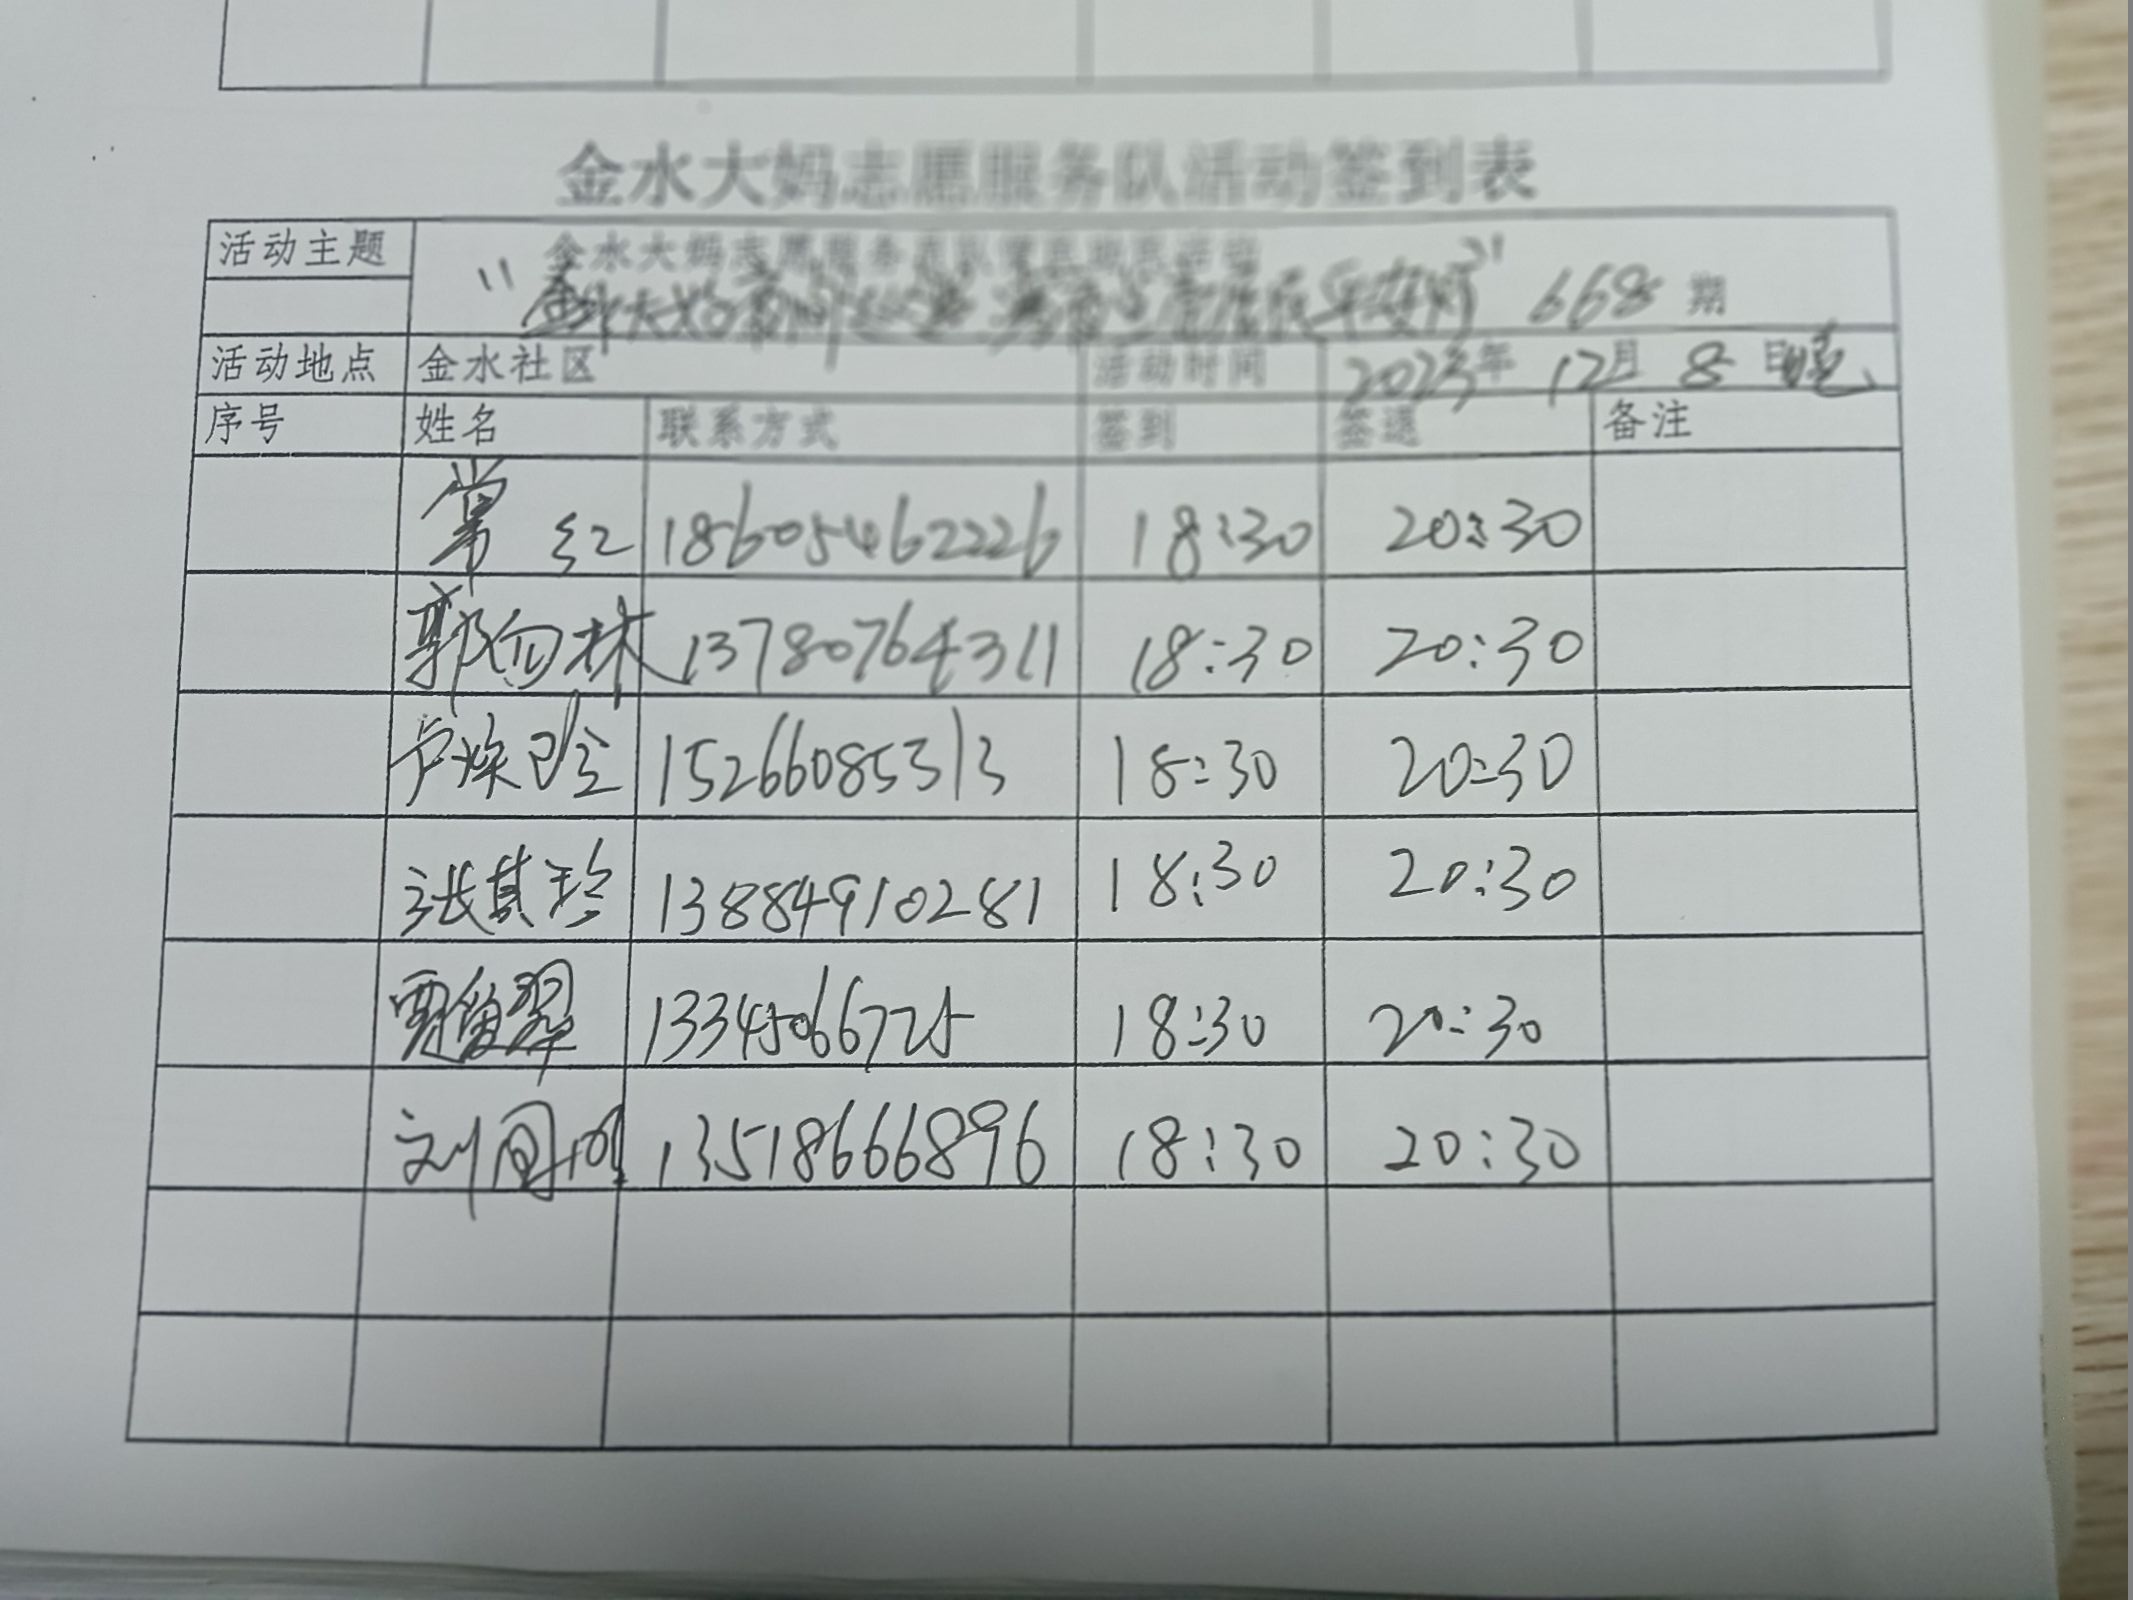 金水大妈志愿服务队活动签到表
活动主题
金水大妈志愿服务
668 期
活动地点 金水社区 活动时间 2023年 12月 8 日晚
序号 姓名 联系方式 签到 签退 备注
常 红 18605462226 18:30 20:30
郭 林 13780764311 18:30 20:30
卢焕 15266085313 18:30 20:30
张其玲 13884910281 18:30 20:30
贾 翠 13345066725 18:30 20:30
刘 13518666896 18:30 20:30